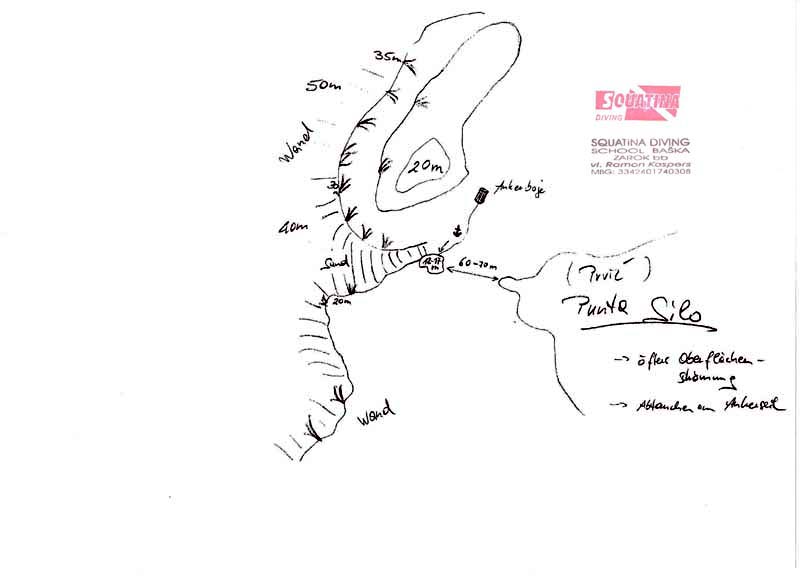 35m
50m
Wand
20m
30
40m
Sand
20m
Wand
Ankerboje
12-17
m
60-70m
SQUATINA
DIVING
SQUATINA DIVING
SCHOOL BAŠKA
ZAROK bb
vl. Ramon Kaspers
MBG: 3342401740308
(Prvić)
Punta Silo
-> öftere Oberflächen-
strömung
-> Abtauchen am Ankerseil